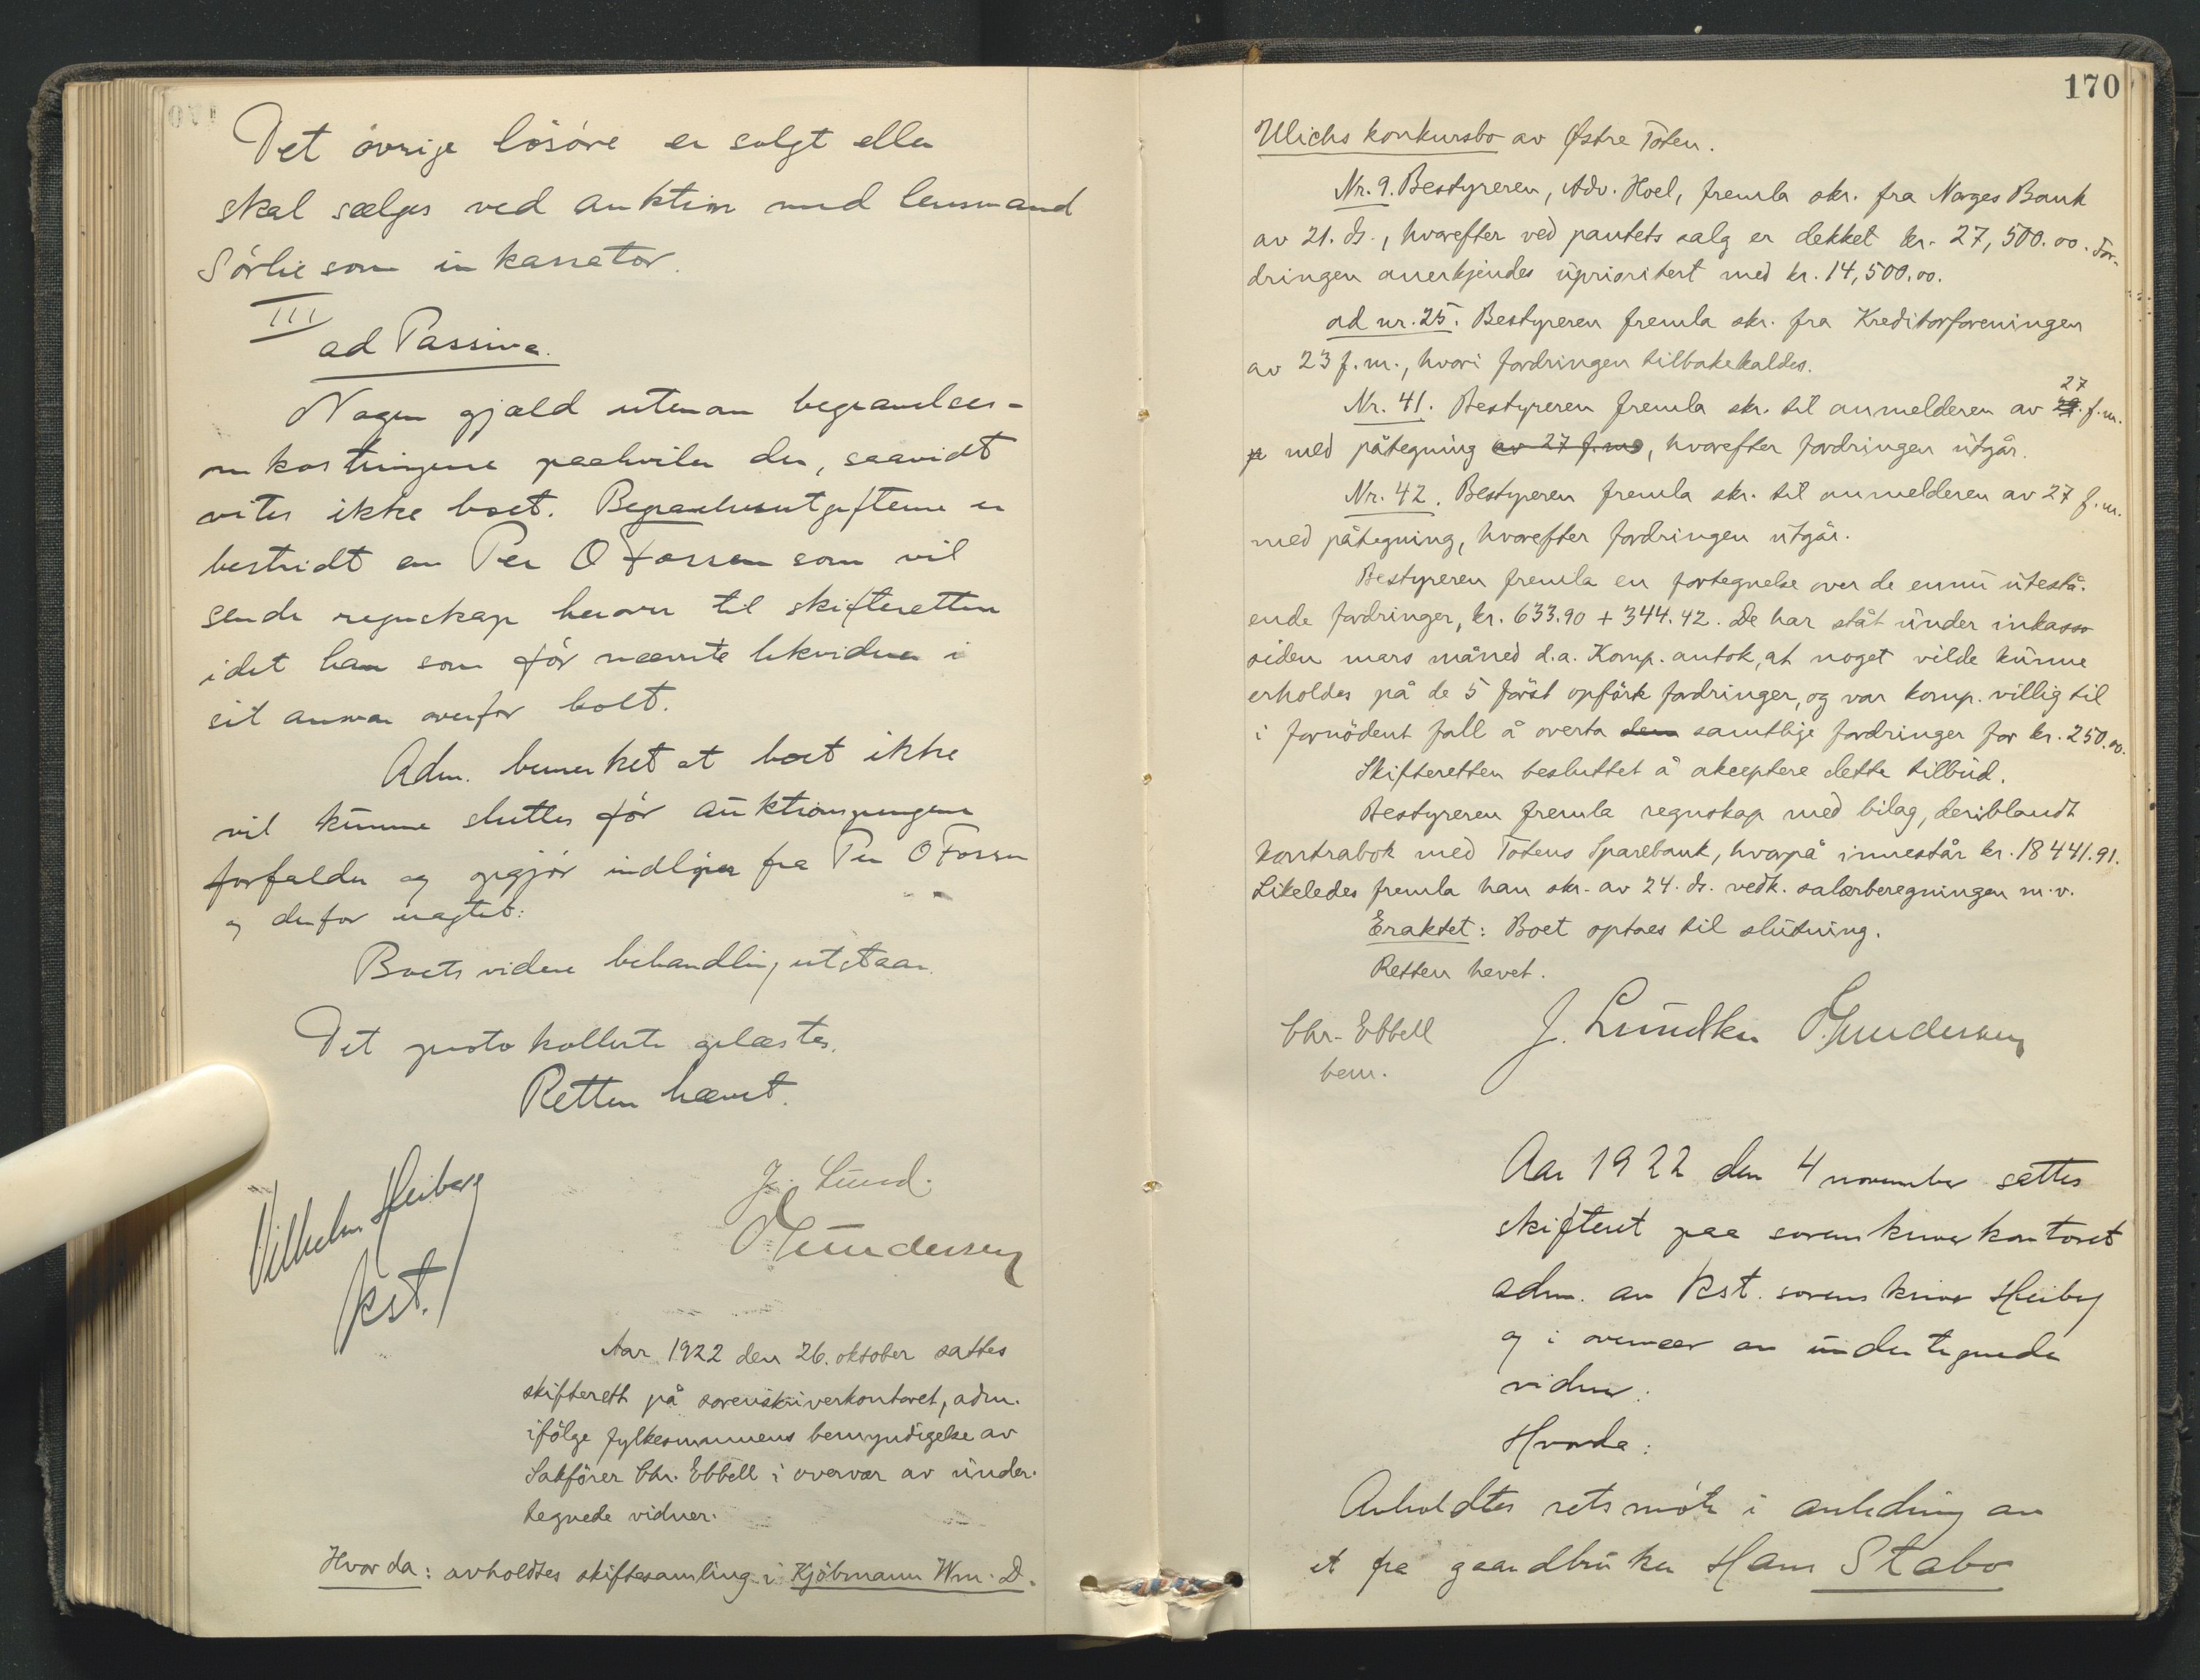 Det övrige lösöre er solgt eller
skal sælges ved auktion med lensmand
Sörlie som inkassator.
III
ad Passiva.
Nogen gjæld utenom begravelses-
omkostningene paahviler der, saavidt
vites ikke boet. Begravelsesutgiftene er
bestridt av Per O Fossen som vil
sende regnskap herover til skifteretten
idet han som för nævnte likviderer i
sit ansvar overfor boet.
Adm. bemerket at boet ikke
vil kunne sluttes för auktionspengene
forfalder og opgjör indligger fra Per O Fossen
og derfor
Boets videre behandling utstaar.
Det protokollerte oplæstes.
Retten hævet.
Vilhelm Heiberg
kst.
J. Lund.
O Gundersen
Aar 1922 den 26. oktober sattes
skifterett på sorenskriverkontoret, adm.
ifölge fylkesmannens bemyndigelse av
Sakförer Chr. Ebbell i overvær av under-
tegnede vidner.
Hvorda: avholdtes skiftesamling i Kjöbmann Wm. D.
170
Ulichs konkursbo av Østre Toten.
Nr. 9. Bestyreren, Adv. Hoel, fremla skr. fra Norges Bank
av 21. ds., hvorefter ved pantets salg er dekket kr. 27,500.00. For-
dringen anerkjendes uprioritert med kr. 14,500.00.
ad nr. 25. Bestyreren fremla skr. fra Kreditorforeningen
av 23 f.m., hvori fordringen tilbakekaldes.
Nr. 41. Bestyreren fremla skr. til anmelderen av 27 f.m.
med påtegning av 27 f.m., hvorefter fordringen utgår.
Nr. 42. Bestyreren fremla skr. til anmelderen av 27 f.m.
med påtegning, hvorefter fordringen utgår.
Bestyreren fremla en fortegnelse over de ennu utestå-
ende fordringer, kr. 633.90 + 344.42. De har ståt under inkasso
siden mars måned d.a. Komp. antok, at noget vilde kunne
erholdes på de 5 först opförte fordringer, og var komp. villig til
i fornödent fall å overta dem samtlige fordringer for kr. 250.00.
Skifteretten besluttet å akceptere dette tilbud.
Bestyreren fremla regnskap med bilag, deriblandt
kontrabok med Totens Sparebank, hvorpå innestår kr. 18441.91.
Likeledes fremla han skr. av 24. ds. vedk. salærberegningen m.v.
Eraktet: Boet optaes til slutning.
Retten hevet.
Chr. Ebbell
bem.
J. Lundken O. Gundersen
Aar 1922 den 4 november sattes
skifteret paa sorenskriverkontoret
adm. av kst. sorenskriver Heiberg
og i overvær av undertegnede
vidner:
Hvorda:
Avholdtes retsmöte i anledning av
et fra gaardbruker Hans Stabo